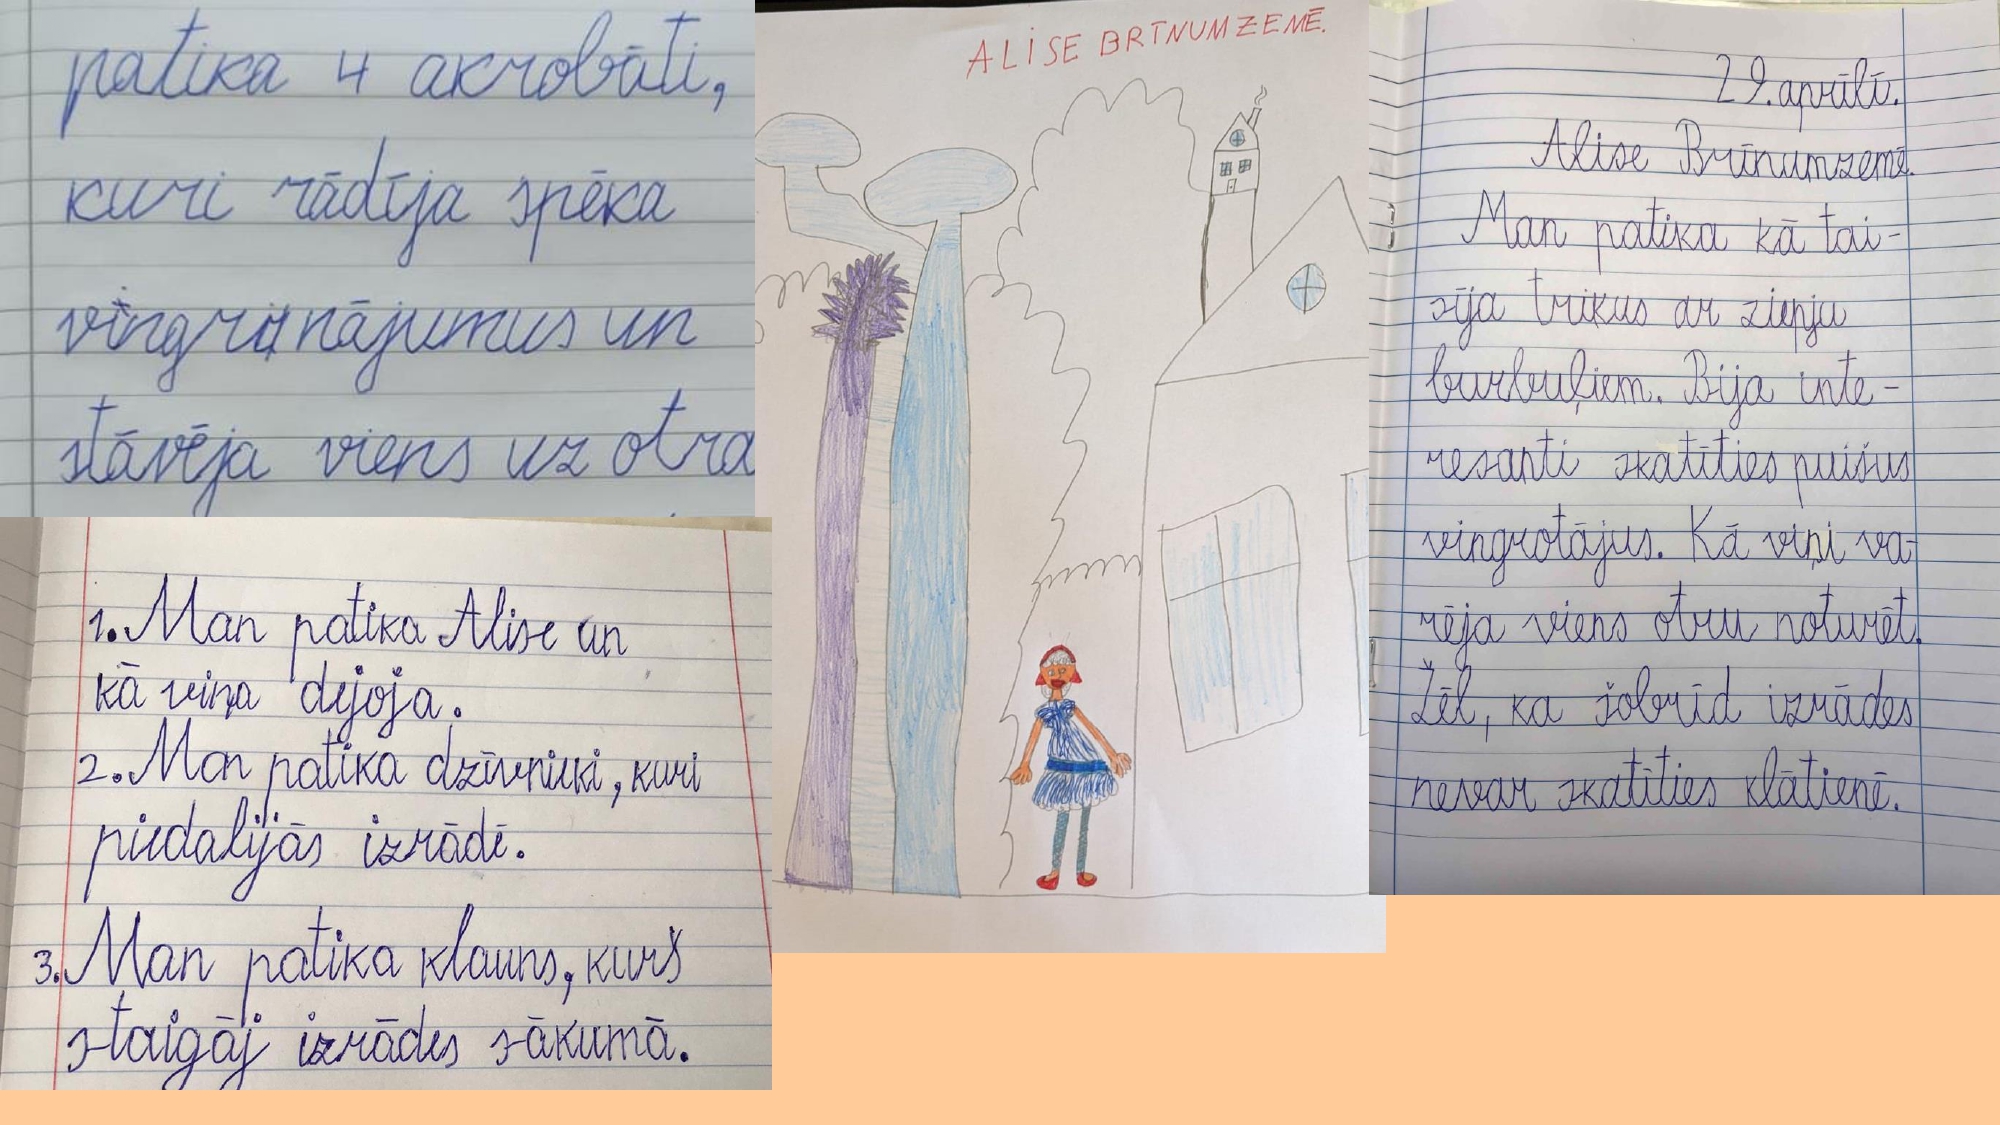 patika 4 akrobāti,
kuri rādīja spēka
vingrinājumus un
stāvēja viens uz otra
1. Man patika Alise un
kā viņa dejoja.
2. Man patika dzīvnieki, kuri
piedalijās izrādē.
3. Man patika klauns, kurš
staigāj izrādes sākumā.
ALISE BRĪNUMZEMĒ.
29. aprīlī.
Alise Brīnumzemē.
Man patika kā tai-
sīja trikus ar ziepju
burbuļiem. Bija inte-
resanti skatīties puišus
vingrotājus. Kā viņi va-
rēja viens otru noturēt.
Žēl, ka šobrīd izrādes
nevar skatīties klātienē.